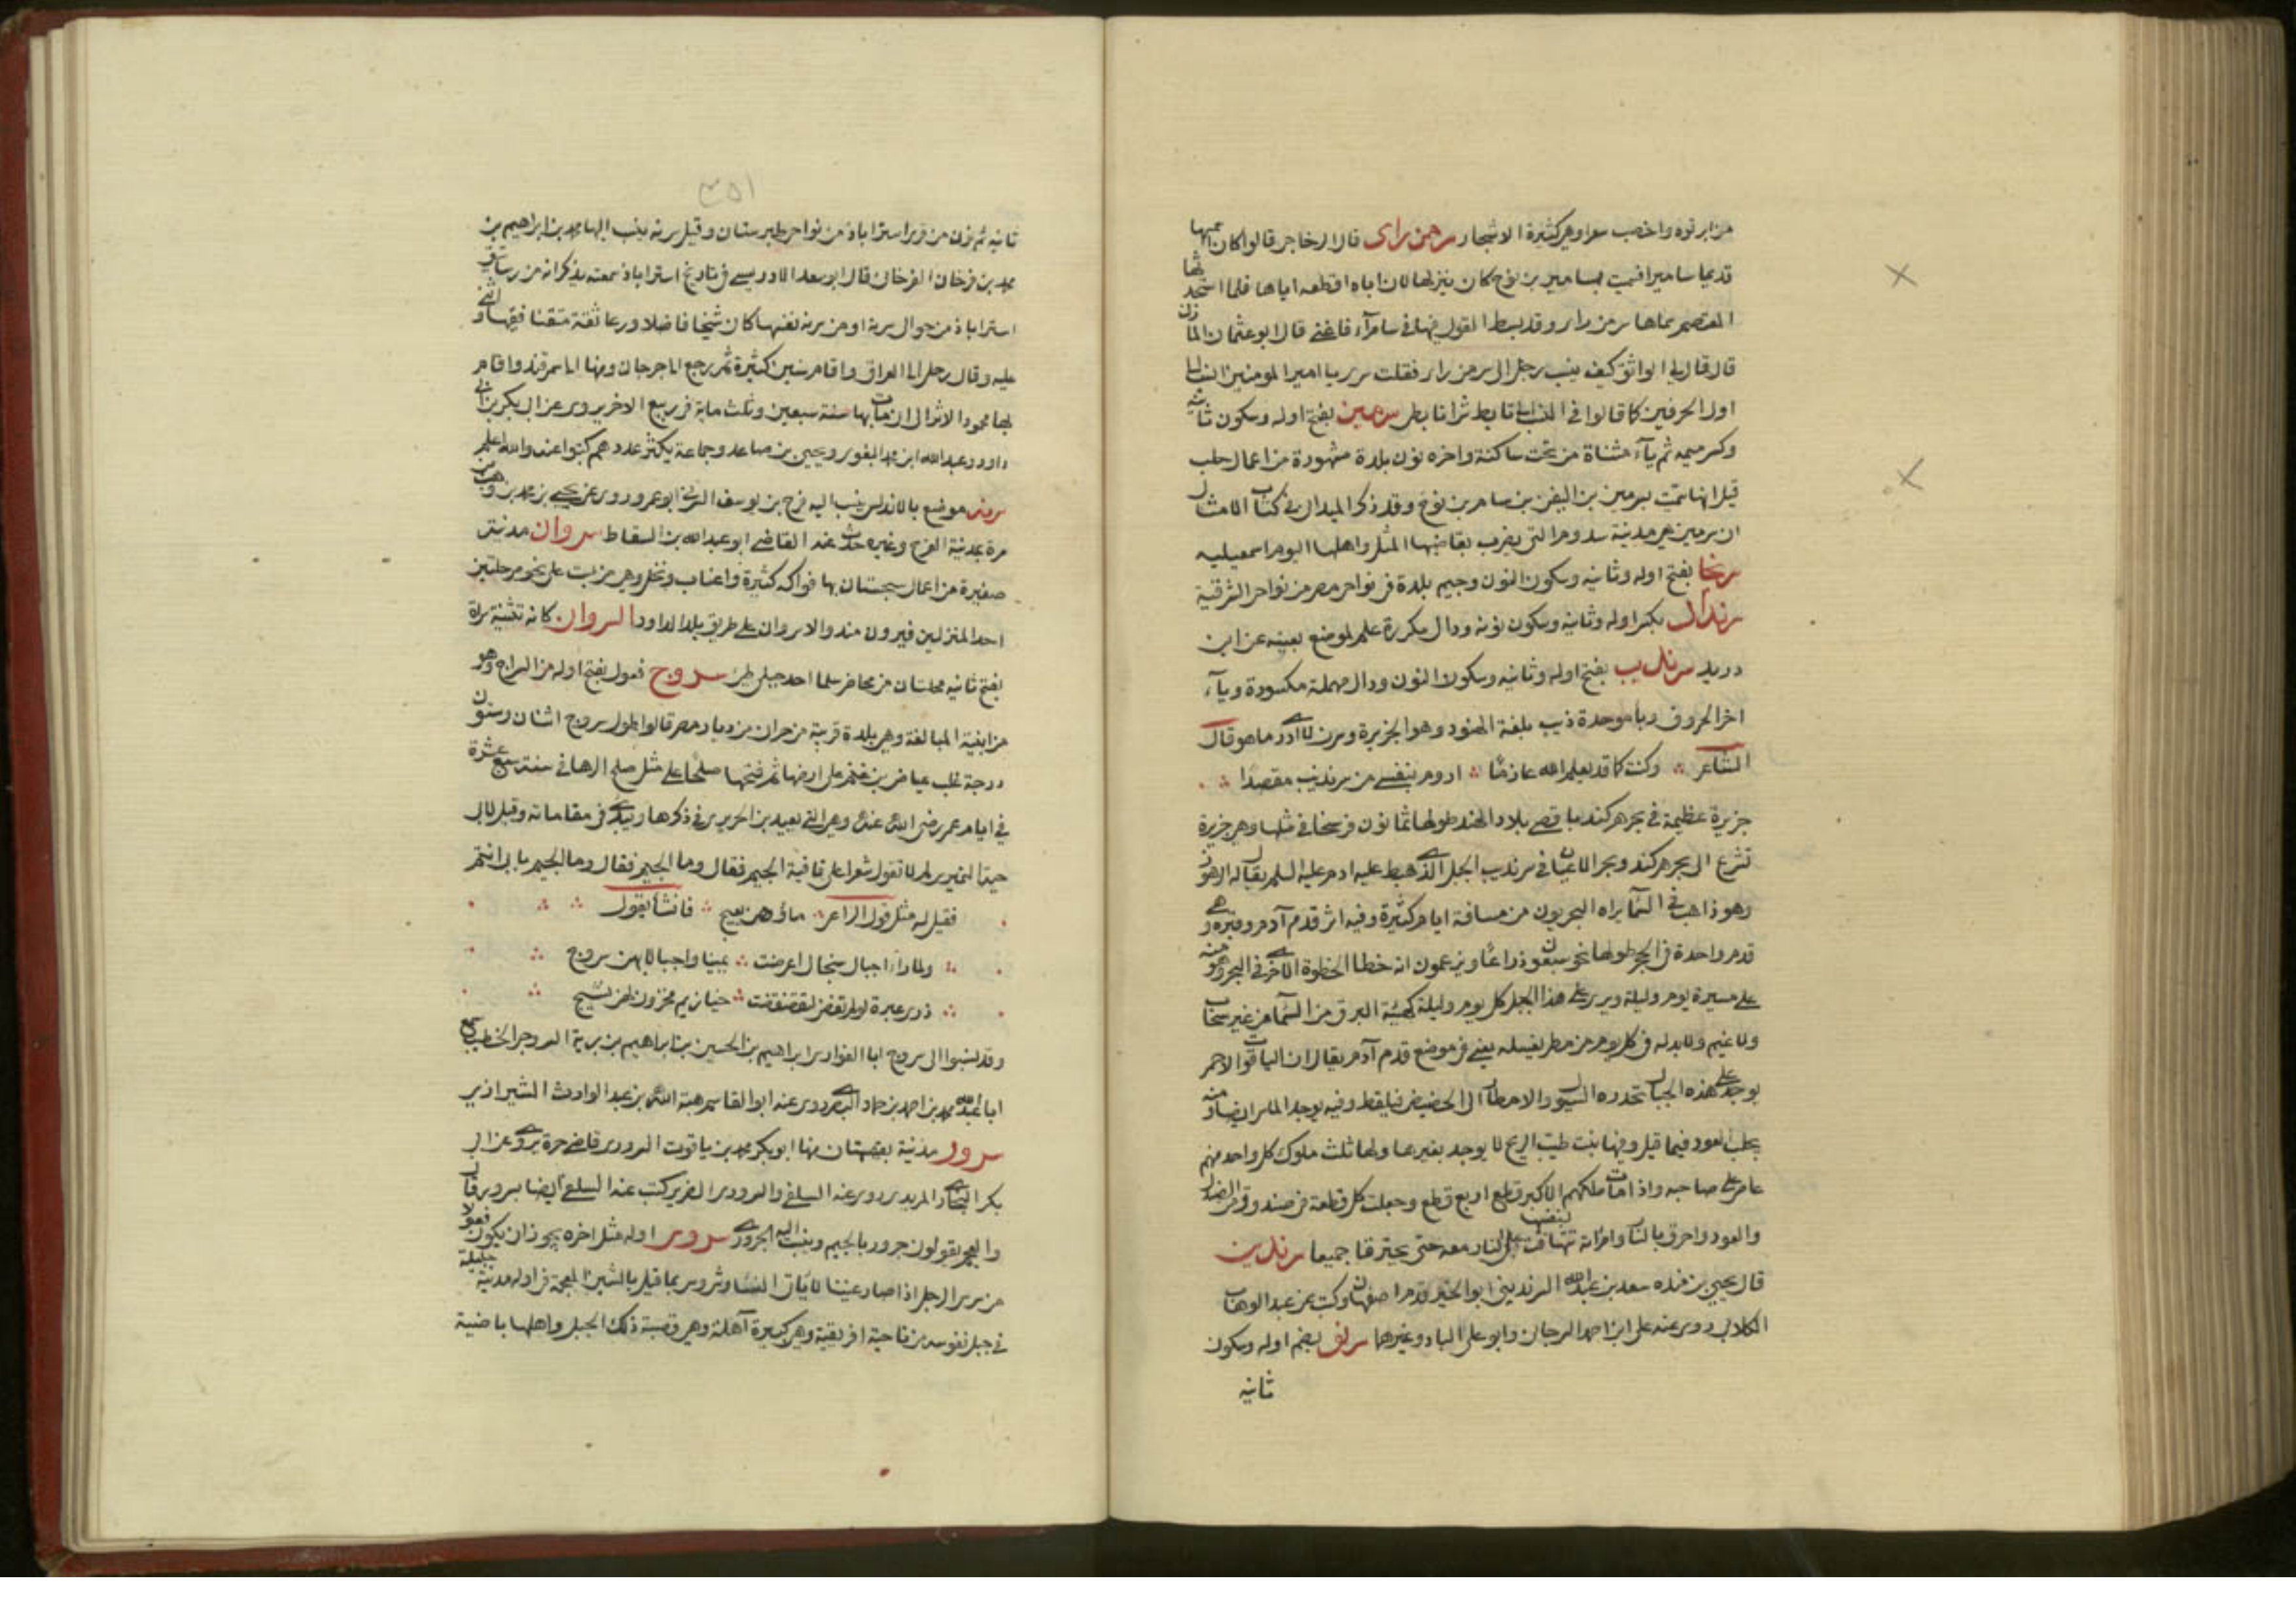 من ابرقوه واخصب سعرا وهى كثيرة الاشجار سر من راى قال الزجاجى قالوا كان اسمها
قديما ساميرا فسميت بسامير بن نوح كان ينزلها لان اباه اقطعه اياها فلما استحدثها
المعتصم سماها سر من راى وقد بسط القول فيها فى سامرآء فاغنى قال ابو عثمان المازنى
قال قال لى الواثق كيف ينسب رجل الى سر من راى فقلت سرى يا امير المؤمنين انسب الى
اول الحرفين كما قالوا فى النسب الى تابط شرا تابطى سرمين بفتح اوله وسكون ثانيه
وكسر ميمه ثم يآء مثناة من تحت ساكنة واخره نون بلدة مشهورة من اعمال حلب
قيل انها سميت بسرمين بن اليفز بن سام بن نوح وقد ذكر الميدانى فى كتاب الامثال
ان سرمين هى مدينة سدوم التى يضرب بقاضيها المثل واهلها اليوم اسمعيلية
سرنجا بفتح اوله وثانيه وسكون النون وجيم بلدة فى نواحى مصر من نواحى الشرقية
سرنداد بكسر اوله وثانيه وسكون نونه ودال مكررة علم لموضع بعينه عن ابن
دريد سرنديب بفتح اوله وثانيه وسكون النون ودال مهملة مكسورة ويآء
اخر الحروف وبا موحدة ديب بلغة الهنود وهو الجزيرة وسرن لا ادرى ما هو قال
الشاعر وكنت كما قد يعلم الله عازما اروم بنفسى من سرنديب مقصدا
جزيرة عظيمة فى بحر هركند باقصى بلاد الهند طولها ثمانون فرسخا فى مثلها وهى جزيرة
تشرع الى بحر هركند وبحر الاعباب فى سرنديب الجبل الذى هبط عليه ادم عليه السلم يقال له الرهون
وهو ذاهب فى السما يراه البحريون من مسافة ايام كثيرة وفيه اثر قدم آدم وقبره وهى
قدم واحدة فى الحجر طولها نحو سبعون ذراعا ويزعمون انه خطا الخطوة الاخرى فى البحر وهو منه
على مسيرة يوم وليلة ويرى على هذا الجبل كل يوم وليلة كهيئة البرق من السما من غير سحاب
ولا غيم ولا بد له فى كل يوم من مطر يغسله يعنى موضع قدم آدم يقال ان الياقوت الاحمر
يوجد على هذه الجبال تحدره السيول والامطار الى الحضيض فيلقط وفيه يوجد الماس ايضا ومنه
يجلب العود فيما قيل وفيها نبت طيب الريح لا يوجد بغيرها ولها ثلث ملوك كل واحد منهم
عاص على صاحبه واذا مات ملكهم الاكبر قطع اربع قطع وجعلت كل قطعة فى صندوق من الصندل
والعود واحرق بالنار وامراته تتهافت بنفسها على النار معه حتى يحترقا جميعا سرندين
قال يحيى بن منده سعد بن عبد الله السرندينى ابو الخير قدم اصفهان وكتب عن عبد الوهاب
الكلابى روى عنه على ابن احمد السرجانى وابو على اللباد وغيرهما سرنه بضم اوله وسكون
ثانيه
٣٥١
ثانيه ثم نون من قرى استراباذ من نواحى طبرستان وقيل سرنه ينسب اليها محمد بن ابراهيم بن
محمد بن فرخان الفرخانى قال ابو سعد الادريسى فى تاريخ استراباذ سمعته يذكر انه من رساتيق
استراباذ من حوالى سرنة او من سرنه نفسها كان شيخا فاضلا ورعا ثقة متقنا فقيها واثنى
عليه وقال رحل الى العراق واقام سنين كثيرة ثم رجع الى جرجان ومنها الى سمرقند واقام
بها محمود الاثر الى ان مات بها سنة سبعين وثلث ماية فى ربيع الاخر يروى عن ابى بكر بن ابى
داود وعبد الله ابن محمد البغوى ويحيى بن صاعد وجماعة يكثر عددهم كتبوا عنه والله اعلم
سرنه موضع بالاندلس ينسب اليه فرج بن يوسف السرنى ابو عمر وروى عن يحيى بن محمد بن وهب بن
مرة بمدينة الفرج وغيره حدث عنه القاضى ابو عبد الله بن السقاط سروان مدينة
صغيرة من اعمال سجستان بها فواكه كثيرة واعناب ونخل وهى من بست على نحو مرحلتين
احد المنزلين فيروزمند والاخر سروان على طريق بلد الداور السروان كانه تثنية سراة
بفتح ثانيه محلتان من محاضر سلمى احد جبلى طئ سروج فعول بفتح اوله من السراج وهو
من ابنية المبالغة وهى بلدة قريبة من حران من ديار مصر قالوا طول سروج اثنان وستون
درجة غلب عياض بن غنم على ارضها ثم فتحها صلحا على مثل صلح الرها فى سنة سبع عشرة
فى ايام عمر رضى الله عنه وهى التى يعيد بن الحريرى فى ذكرها ويبدئ فى مقاماته وقيل لابى
حية النميرى لم لا تقول شعرا على قافية الجيم فقال وما الجيم فقال وما الجيم بابى انتم
فقيل له مثل قول الراعى ماؤهن يعيج فانشا يقول
ولما راى اجبال سنجار اعرضت يمينا واجبالا بهن سروج
ذرى عبرة لو لم تفض لتقضقضت حيازيم محزون لهن نشيج
وقد نسبوا الى سروج ابا الفوارس ابراهيم بن الحسين بن ابراهيم بن برية السروجى الخطيب سمع
ابا عبد الله محمد بن احمد بن حماد البصرى روى عنه ابو القاسم هبة الله بن عبد الوارث الشيرازى
سرور مدينة بقهستان منها ابو بكر محمد بن ياقوت السرورى قاضى جرة يروى عن ابى
بكر النجاد المربدى روى عنه السلفى والسرورى الضرير كتب عنه السلفى ايضا بسرور قال
والعجم يقولون جرور بالجيم وينسب اليه الجرورى سروس اوله مثل اخره يجوز ان يكون فعولا
من سرس الرجل اذا صار عنينا لا ياتى النسا وشروس بما قيل بالشين المعجمة فى اوله مدينة جليلة
فى جبل نفوسة من ناحية افريقية وهى كبيرة آهلة وهى قصبة ذلك الجبل واهلها اباضية